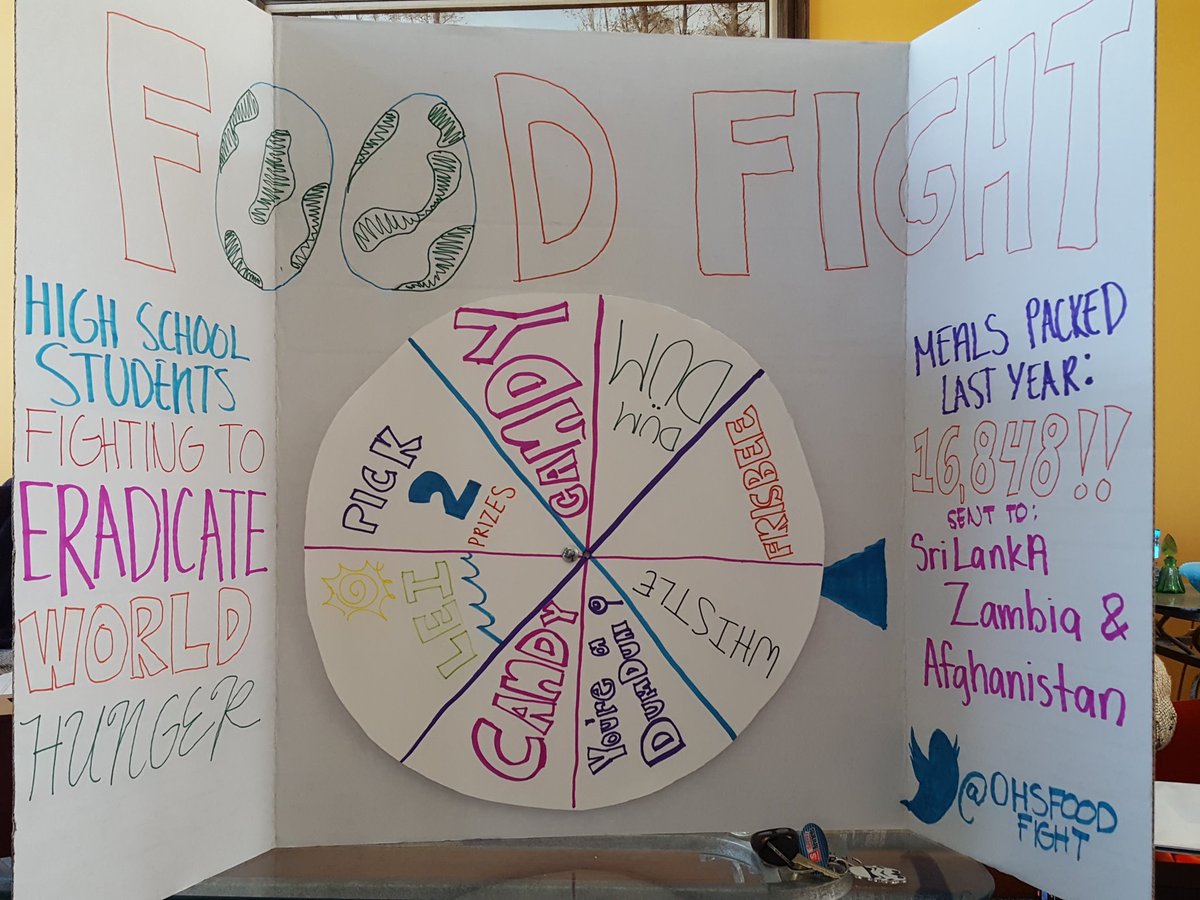 FOOD FIGHT
HIGH SCHOOL
STUDENTS
FIGHTING TO
ERADICATE
WORLD
HUNGER
CANDY
DUM
DUM
FRISBEE
WHISTLE
You're a
DUMDUM?
CANDY
LEI
PICK
2
PRIZES
MEALS PACKED
LAST YEAR:
16,848!!
SENT TO:
Sri LankA
Zambia &
Afghanistan
@OHSFOOD
FIGHT